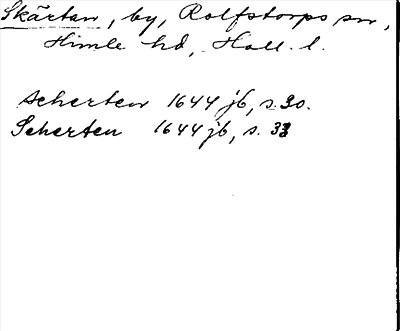 Skärtan, by, Rolfstorps sn,
Himle hd, Hall. l.
Scherten 1644 jb, s. 30.
Scherten 1644 jb, s. 33